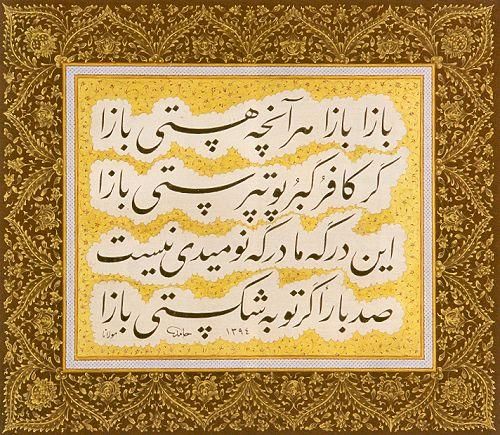 بازا بازا هر آنچه هستی بازا
گر کافر گبر و بت پرستی بازا
این درگه ما درگه نومیدی نیست
صد بار اگر توبه شکستی بازا
١٣٩٤ حامد مولانا